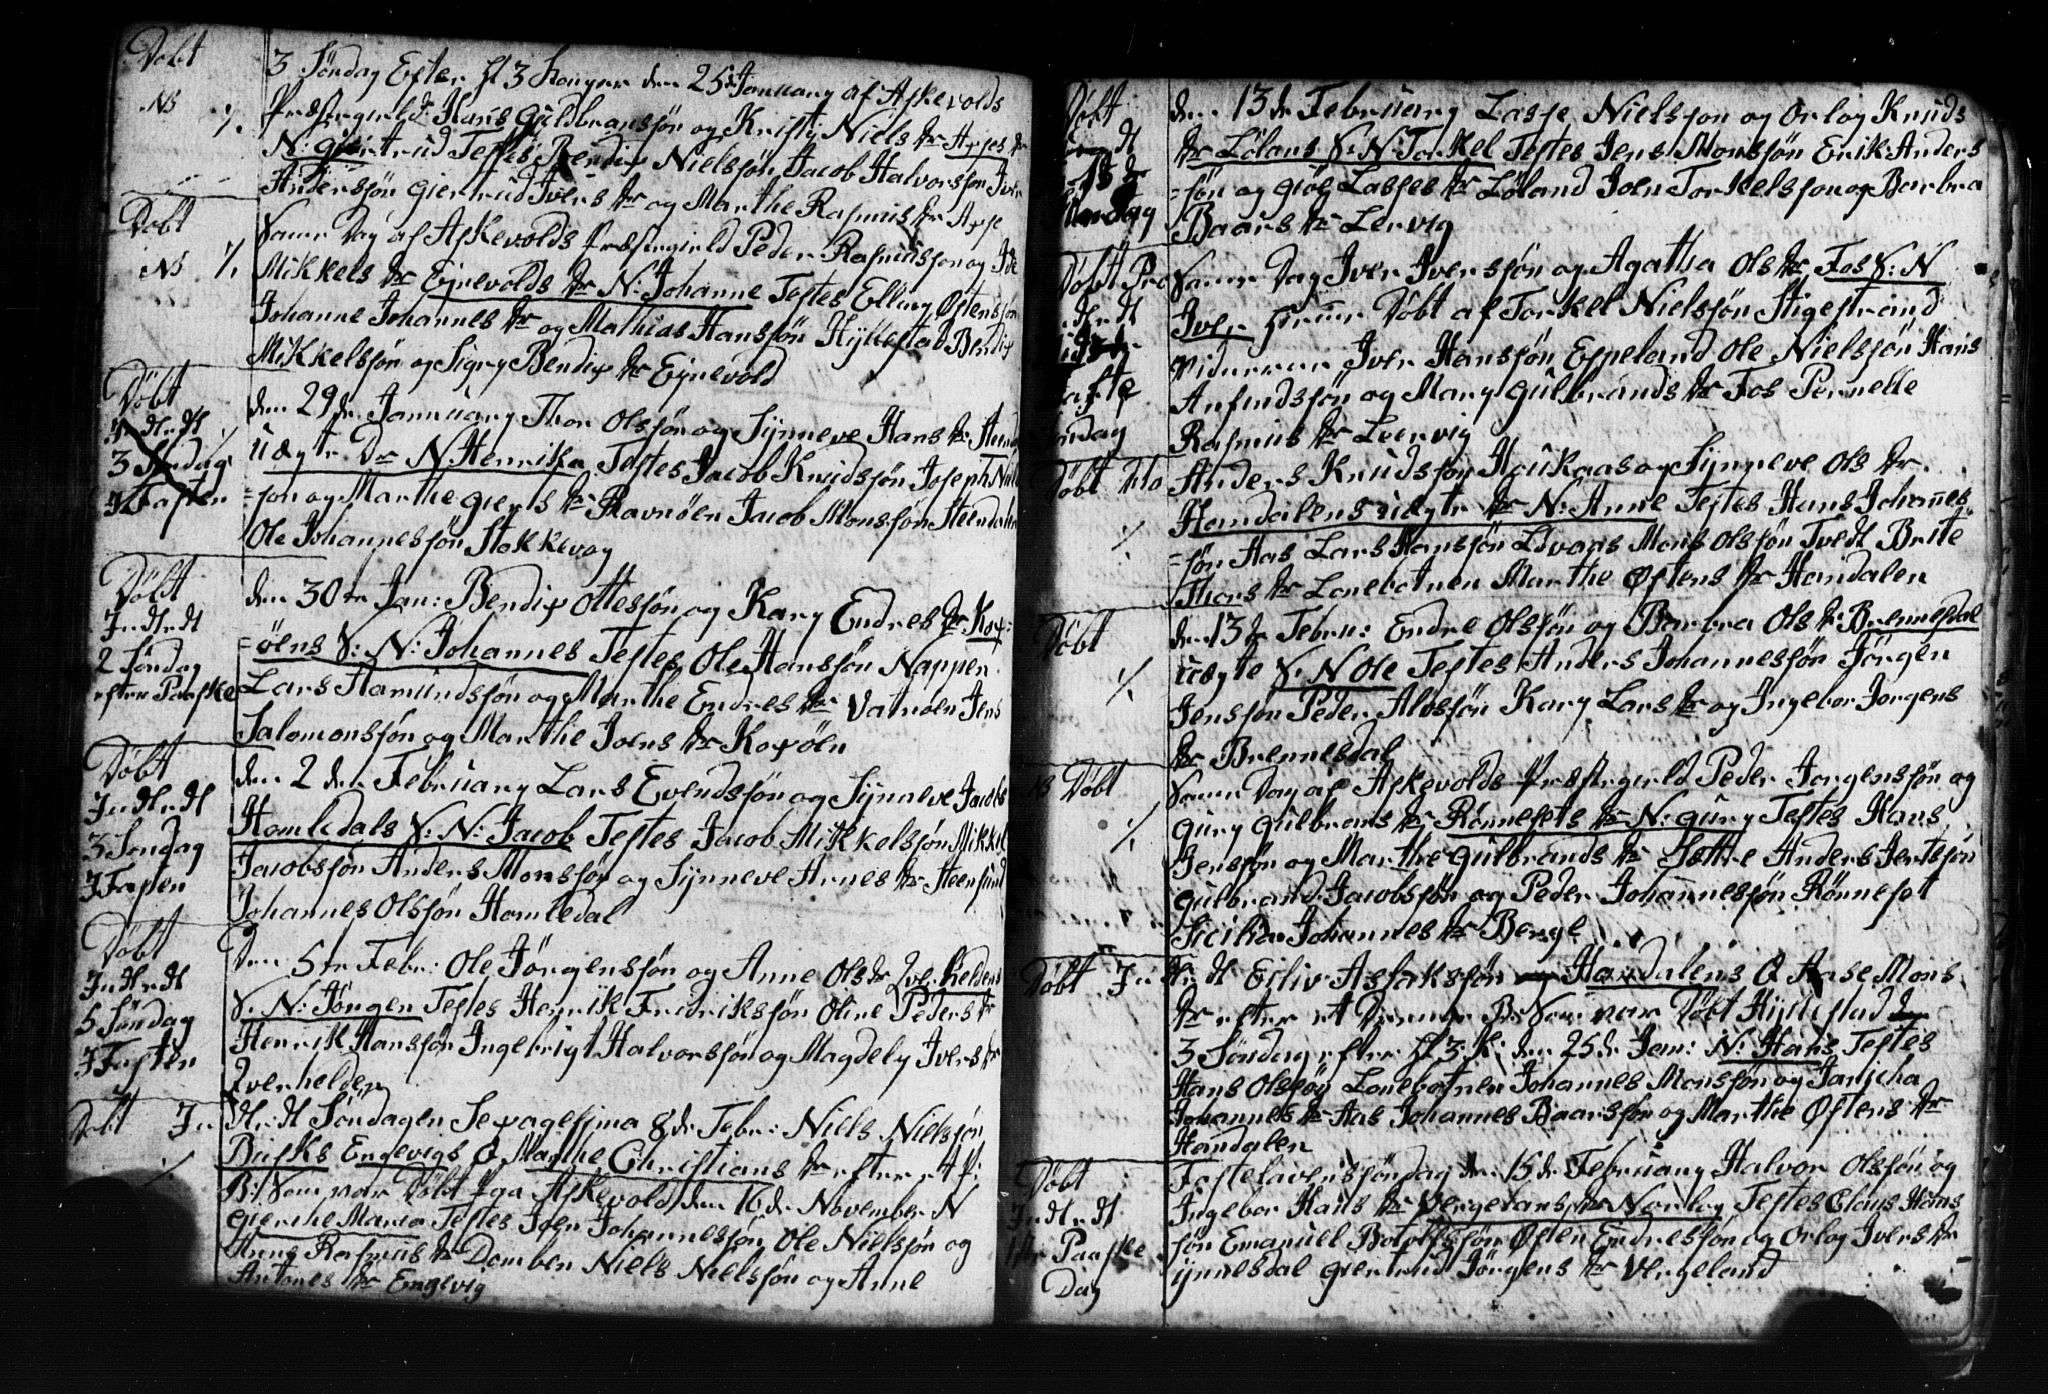 Døbt
3 Søndag Efter H 3 Konger den 25de January af Askevolds
NB ·/.
Præstegield Hans Guldbransøn og Kristj Niels dr Axses dr
N: Giertrud Testes Bendix Nielssøn Jacob Halvorsøn Iver
Anderssøn Giertrud Ivers dr og Marthe Rasmus dr Axse
Døbt
Samme Dag af Askevolds Præstegield Peder Rasmussøn og
NB ·/.
Mikkels dr Eqnevolds dr N: Johanne Testes Elling Østensøn
Johanne Johannes dr og Mathias Hanssøn Hÿllestad Bendix
Mikkelssøn og Sigry Bendix dr Eqnevold
Døbt
den 29de January Thor Olssøn og Synneve Hans dr
J. H. H.
3 Søndag
J Fasten
uægte Dr N: Henrika Testes Jacob Knudssøn Joseph
søn og Marthe Gierts dr Ravnøen Jacob Monssøn Heendalen
Ole Johannessøn Stokkevog
Døbt
den 30te Jan: Bendix Ottessøn og Kary Endres dr Kox=
J. H. H.
2 Søndag
efter Paaske
=øens S: N: Johannes Testes Ole Hanssøn Nappen
Lars Hamundssøn og Marthe Endres dr Vatnøen Jens
Salomonssøn og Marthe Joens dr Koxøen
Døbt
den 2den February Lars Evendssøn og Synneve Jacobs
J. H. H.
3 Søndag
J Fasten
Homledals S: N: Jacob Testes Jacob Mikkelssøn Mikkel
Jacobssøn Anders Monssøn og Synneve Arnes dr Steensund
Johannes Olssøn Homledal
Døbt
Den 5te Febr: Ole Jørgenssøn og Anne Ols dr Qverheldens
J. H. H.
5 Søndag
J Fasten
S. N: Jørgen Testes Henrik Fredrikssøn Oline Peders dr
Henrik Hanssøn Ingebrigt Halvorssøn og Magdely Ivers dr
Qverhelden
Døbt J. H. H. Søndagen Sexagesima 8de Febr: Niels Nielssøn
·/.
Busks Engevigs & Marthe Christians dr efter et P:
B: Som var Døbt paa Askevold den 16de November N
Gierthe Maria Testes Joen Johannessøn Ole Nielssøn og
Anne Rasmus dr Domben Niels Nielssøn og Anne
Antones dr Engevig
Døbt
den 13de February Lasse Nielsson og Orlog Knuds
dr Lølans S: N: Torkel Testes Jens Monssøn Erik Anders
=søn og Giøe Lasses dr Løland Joen Torkelsson og Barbra
Baars dr Lervig
Døbt
Samme Dag Iver Iverssøn og Agatha Ols dr Fos S: N
Iver Døbt af Torkel Nielssøn Stigestrand
Vidnerne Iver Hanssøn Espeland Ole Nielssøn Hans
Anfindssøn og Mary Gulbrands dr Fos Pernelle
Søndag
Rasmus dr Leervig
Døbt
Anders Knudssøn Houkaas og Synneve Ols dr
Handalens uægte dr N: Anne Testes Hans Johannes
·/.
=søn Aas Lars Hanssøn Ldvaag Mons Olssøn Tvedt Brite
Thors dr Lonebotnen Marthe Østens dr Handalen
Døbt
den 13de Febru: Endre Olssøn og Barbra Ols dr Brennesdal
·/.
uægte S: N Ole Testes Anders Johannessøn Jørgen
Jenssøn Peder Alvssøn Kary Lars dr og Ingebor Jørgens
dr Brennesdal
Døbt
Samme Dag af Askevolds Præstegield Peder Jørgenssøn og
·/.
Gury Gulbrans dr Rønnesets dr N: Gury Testes Hans
Jenssøn og Marthe Gulbrands dr Sætre Anders Jentssøn
Gulbrand Jacobssøn og Peder Johannessøn Rønneset
Sicilia Johannes dr Berge
Døbt J. H. H. Eiliv Aslakssøn Handalens & Aase Mons
dr efter et B: Som var Døbt Hÿllestad
3 Søndag efter H 3 K: den 25de Jan: N: Hans Testes
Hans Olssøn Lonebotnen Johannes Monssøn og Janicha
Johannes dr Aas Johannes Baarssøn og Marthe Østens dr
Handalen
Døbt
Fastelavenssøndag den 15de February Halvor Olssøn og
J. H. H.
Ingebor Hans dr Vergelans dr N: Orlog Testes Claus Hans
Paaske
søn Emanuel Botolfssøn Østen Endressøn og Orlog Ivers dr
Dag
ÿnnesdal Giertrud Jørgens dr Vergeland